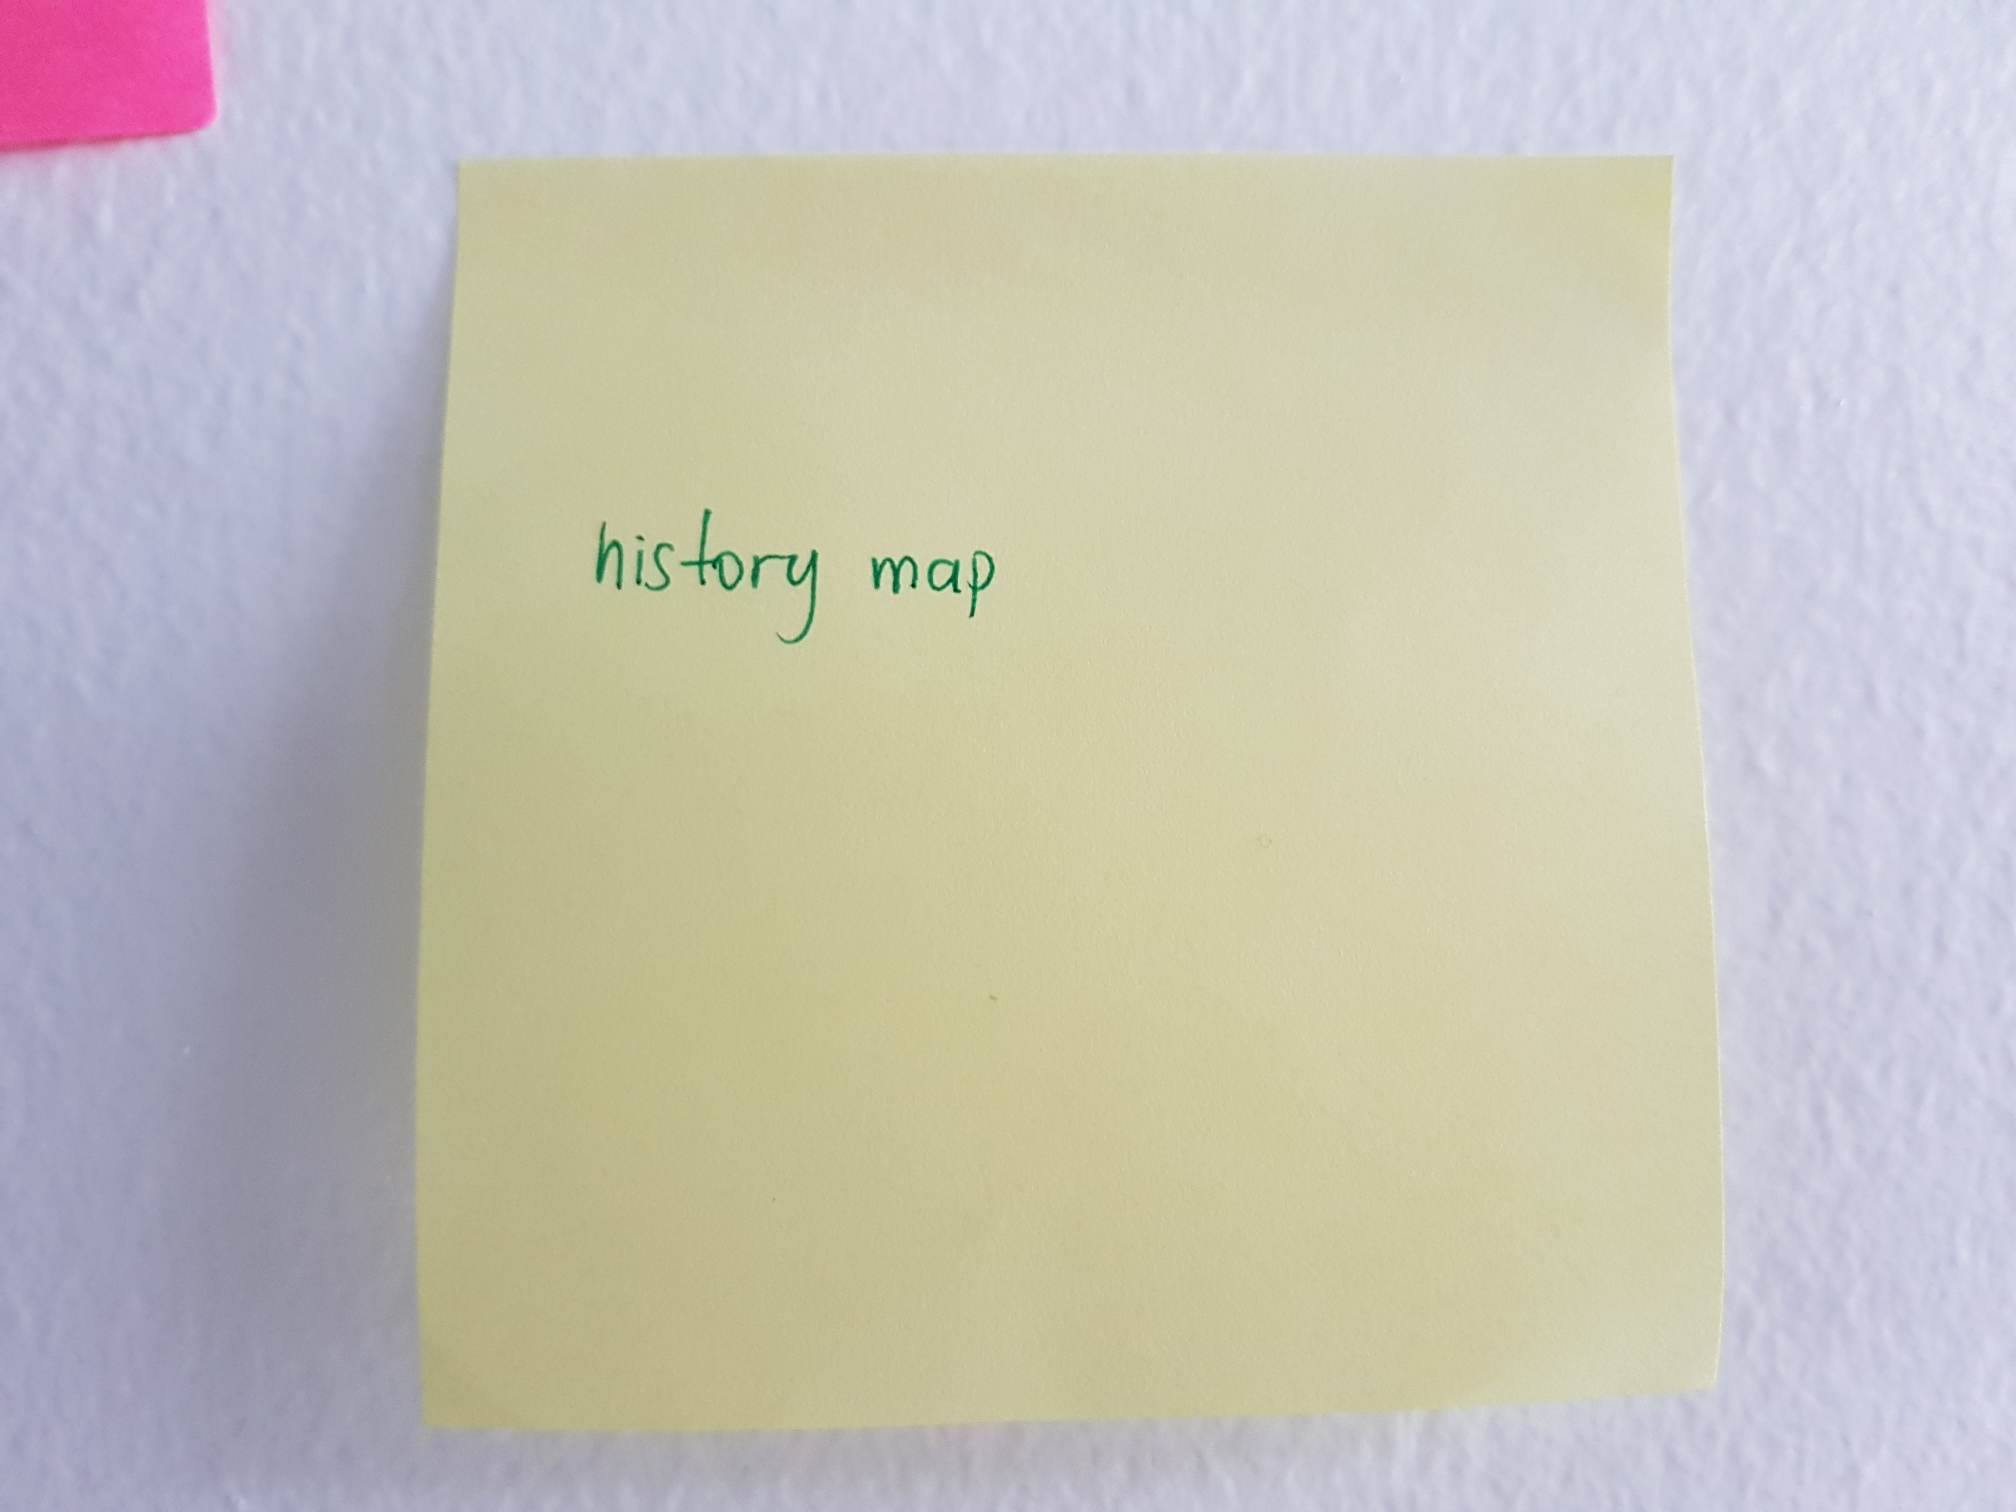 history map